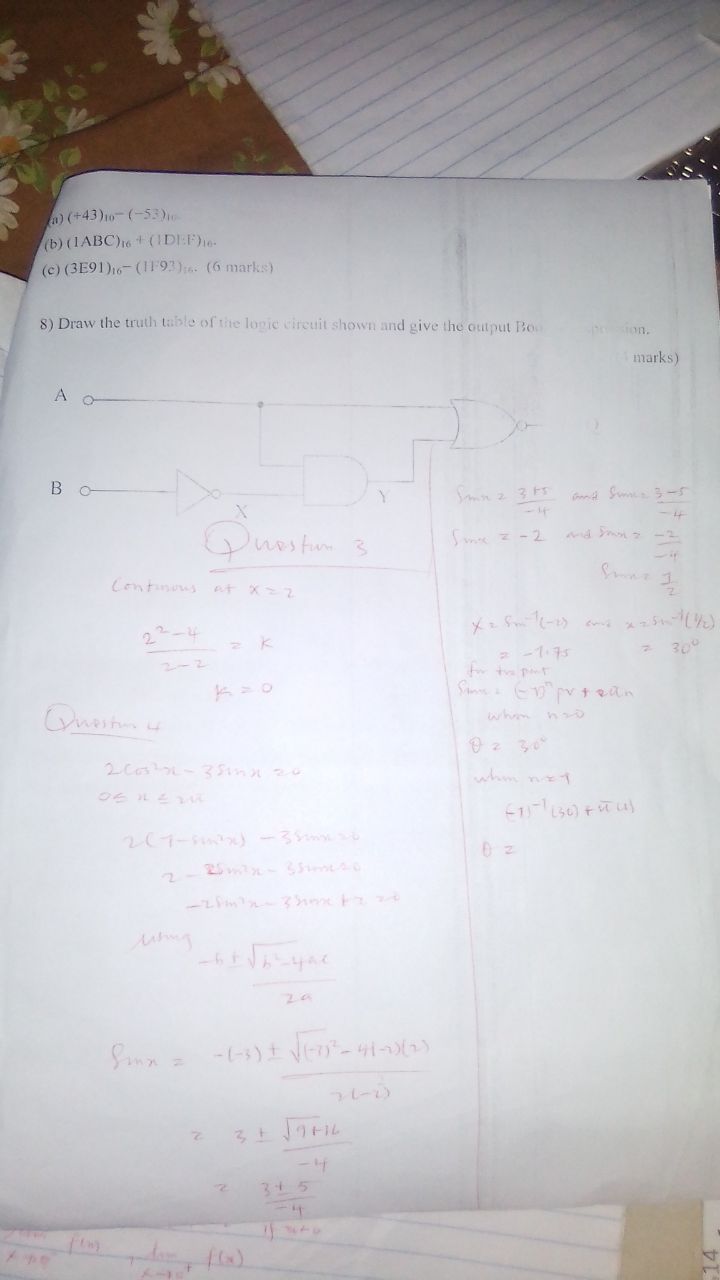 a) (+43)₁₀− (−53)₁₀.
(b) (1ABC)₁₆ + (1DEF)₁₆.
(c) (3E91)₁₆− (1F93)₁₆. (6 marks)
8) Draw the truth table of the logic circuit shown and give the output
marks)
A
Q
B
X
Y
Question 3
Continous at x = 2
2² − 4 / 2 − 2 = K
K = 0
Question 4
2cos²x − 3sinx = 0
0 ≤ x ≤ 2π
2(1 − sin²x) − 3sinx = 0
2 − 2sin²x − 3sinx = 0
−2sin²x − 3sinx + 2 = 0
using
−b ± √b² − 4ac / 2a
Sinx = −(−3) ± √(−3)² − 4(−2)(2) / 2(−2)
= 3 ± √9+16 / −4
= 3 ± 5 / −4
Sinx = 3+5 / −4 and Sinx = 3−5 / −4
Sinx = −2 and Sinx = −2 / −4
Sinx = 1 / 2
x = Sin⁻¹(−2) and x = Sin⁻¹(1/2)
= −1.75 = 30°
for
when n=0
θ = 30°
when n=1
(−1)⁻¹(30) + π(1)
θ =
f(x) , lim f(x)
14